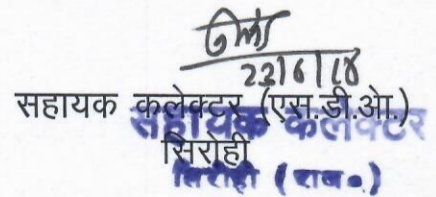 22/6/18
सहायक कलेक्टर (एस.डी.ओ.)
सहायक कलेक्टर
सिरोही
सिरोही (राज०)